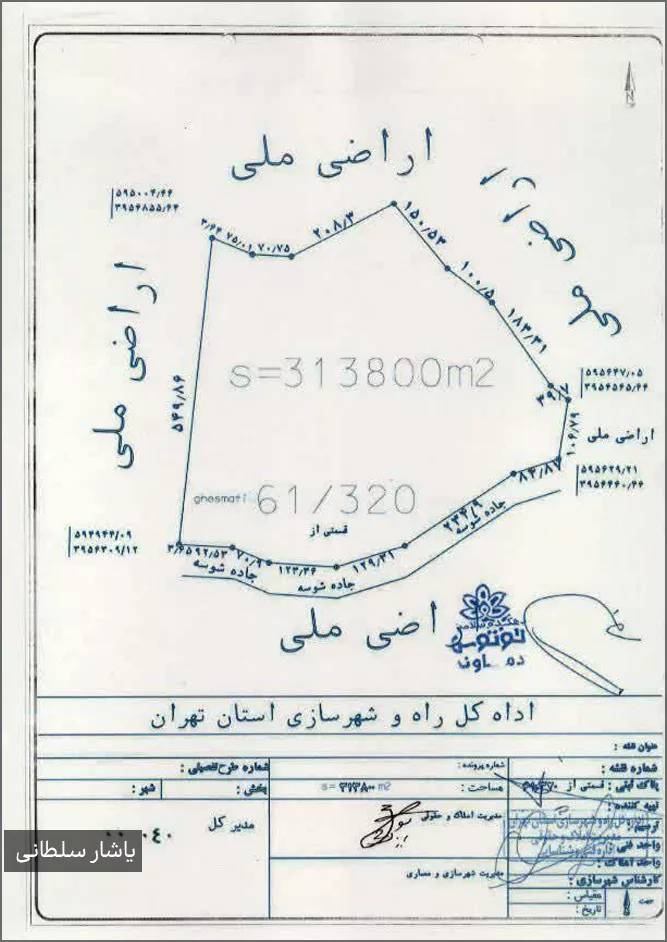 N
اراضی ملی
اراضی ملی
۵۹۵۰۰۴٫۶۶
۳۹۵۶۸۵۵٫۶۴
۷۵٫۰۱
۷۰٫۷۵
۲۰۸٫۳
۱۵۰٫۵۳
۱۰۰٫۵
۱۸۳٫۳۱
۳۹٫۷
اراضی ملی
۵۴۹٫۸۶
s=313800m2
۵۹۵۶۴۷٫۰۵
۳۹۵۶۵۶۵٫۶۴
اراضی ملی
۱۰۶٫۷۹
۵۹۵۶۲۹٫۲۱
۳۹۵۶۴۶۰٫۶۴
۸۴٫۸۷
ghesmati 61/320
قسمتی از
۲۳۴٫۹
جاده شوسه
۵۹۴۹۴۴٫۰۹
۳۹۵۶۳۰۹٫۱۲
۹۲٫۵۳
۷۰٫۹
۱۲۳٫۳۶
۱۲۹٫۳۱
جاده شوسه
جاده شوسه
اضی ملی
اداه کل راه و شهرسازی استان تهران
عنوان نقشه :
شماره نقشه :
شماره پرونده :
شماره طرح تفصیلی :
پلاک ثبتی : قسمتی از
مساحت :
s= ۳۱۳۸۰۰ m2
بخش :
شهر :
تهیه کننده :
ترسیم :
مدیریت املاک و حقوقی
مدیر کل
واحد فنی :
واحد املاک :
کارشناس شهرسازی :
مدیریت شهرسازی و معماری
مقیاس :
تاریخ :
جهت
یاشار سلطانی